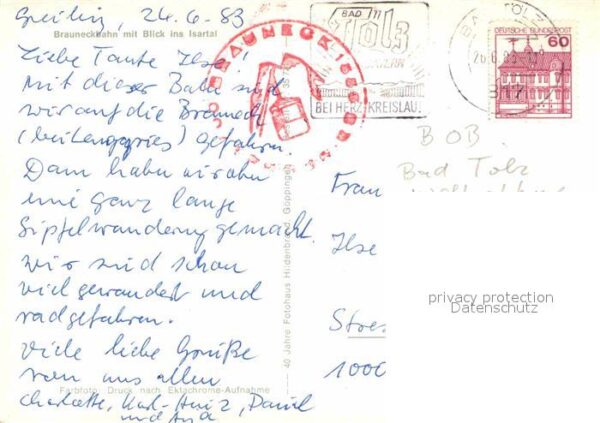 Greiling, 24.6.83
Brauneckbahn mit Blick ins Isartal
Liebe Tante Ilse!
Mit dieser Bahn sind
wir auf die Brauneck
(bei Lenggries) gefahren.
Dann haben wir oben
eine ganz lange
Gipfelwanderung gemacht.
Wir sind schon
viel gewandert und
radgefahren.
Viele liebe Grüße
von uns allen
Farbfoto: Druck nach Ektachrome-Aufnahme
Charlotte, Karl-Heinz, Daniel
und
40 Jahre Fotohaus Hildenbrand, Göppingen
BRAUNECK 1555
BAD
Tölz
BEI HERZ-KREISLAUF
BAD TÖLZ
26.6.83
817
DEUTSCHE BUNDESPOST
60
BOB
Bad Tölz
Frau
Ilse
Stres
1000
privacy protection
Datenschutz